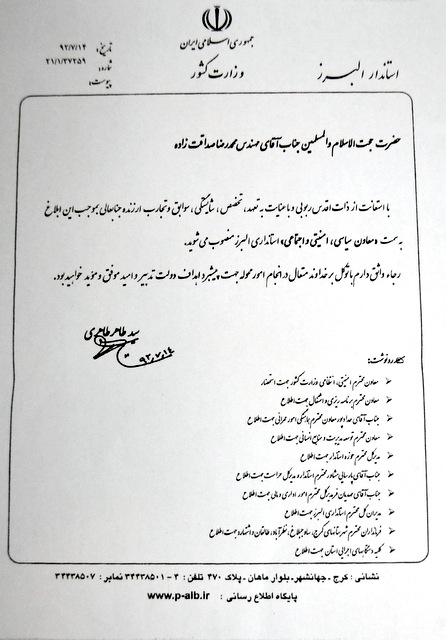 جمهوری اسلامی ایران
وزارت کشور
استاندار البرز
تاریخ: ۹۲/۷/۱۴
شماره: ۲۱/۱/۳۷۲۵۹
پیوست:
حضرت حجت الاسلام والمسلمین جناب آقای مهندس محمدرضا صداقت زاده
با استعانت از ذات اقدس ربوبی و با عنایت به تعهد، تخصص، شایستگی، سوابق و تجارب ارزنده جنابعالی بموجب این ابلاغ
به سمت «معاون سیاسی، امنیتی و اجتماعی» استانداری البرز منصوب می شوید.
رجاء واثق دارم با توکل بر خداوند متعال در انجام امور محوله جهت پیشبرد اهداف دولت تدبیر و امید موفق و مؤید خواهید بود.
سید طاهر طاهری
۹۲,۷,۱۴
رونوشت:
معاون محترم امنیتی، انتظامی وزارت کشور جهت استحضار
معاون محترم برنامه ریزی و اشتغال جهت اطلاع
جناب آقای خدادپور معاون محترم هماهنگی امور عمرانی جهت اطلاع
معاون محترم توسعه مدیریت و منابع انسانی جهت اطلاع
مدیرکل محترم حوزه استاندار جهت اطلاع
جناب آقای پارسایی مشاور محترم استاندار و مدیرکل حراست جهت اطلاع
جناب آقای مدیرکل محترم امور اداری و مالی جهت اطلاع
مدیران کل محترم استانداری البرز جهت اطلاع
فرمانداران محترم شهرستانهای کرج، ساوجبلاغ، نظرآباد، طالقان و اشتهارد جهت اطلاع
کلیه دستگاههای اجرایی استان جهت اطلاع
نشانی: کرج - جهانشهر - بلوار ماهان - پلاک ۴۷۰ تلفن: ۴ - ۳۴۴۳۸۵۰۱ نمابر: ۳۴۴۳۸۵۰۷
پایگاه اطلاع رسانی: www.p-alb.ir